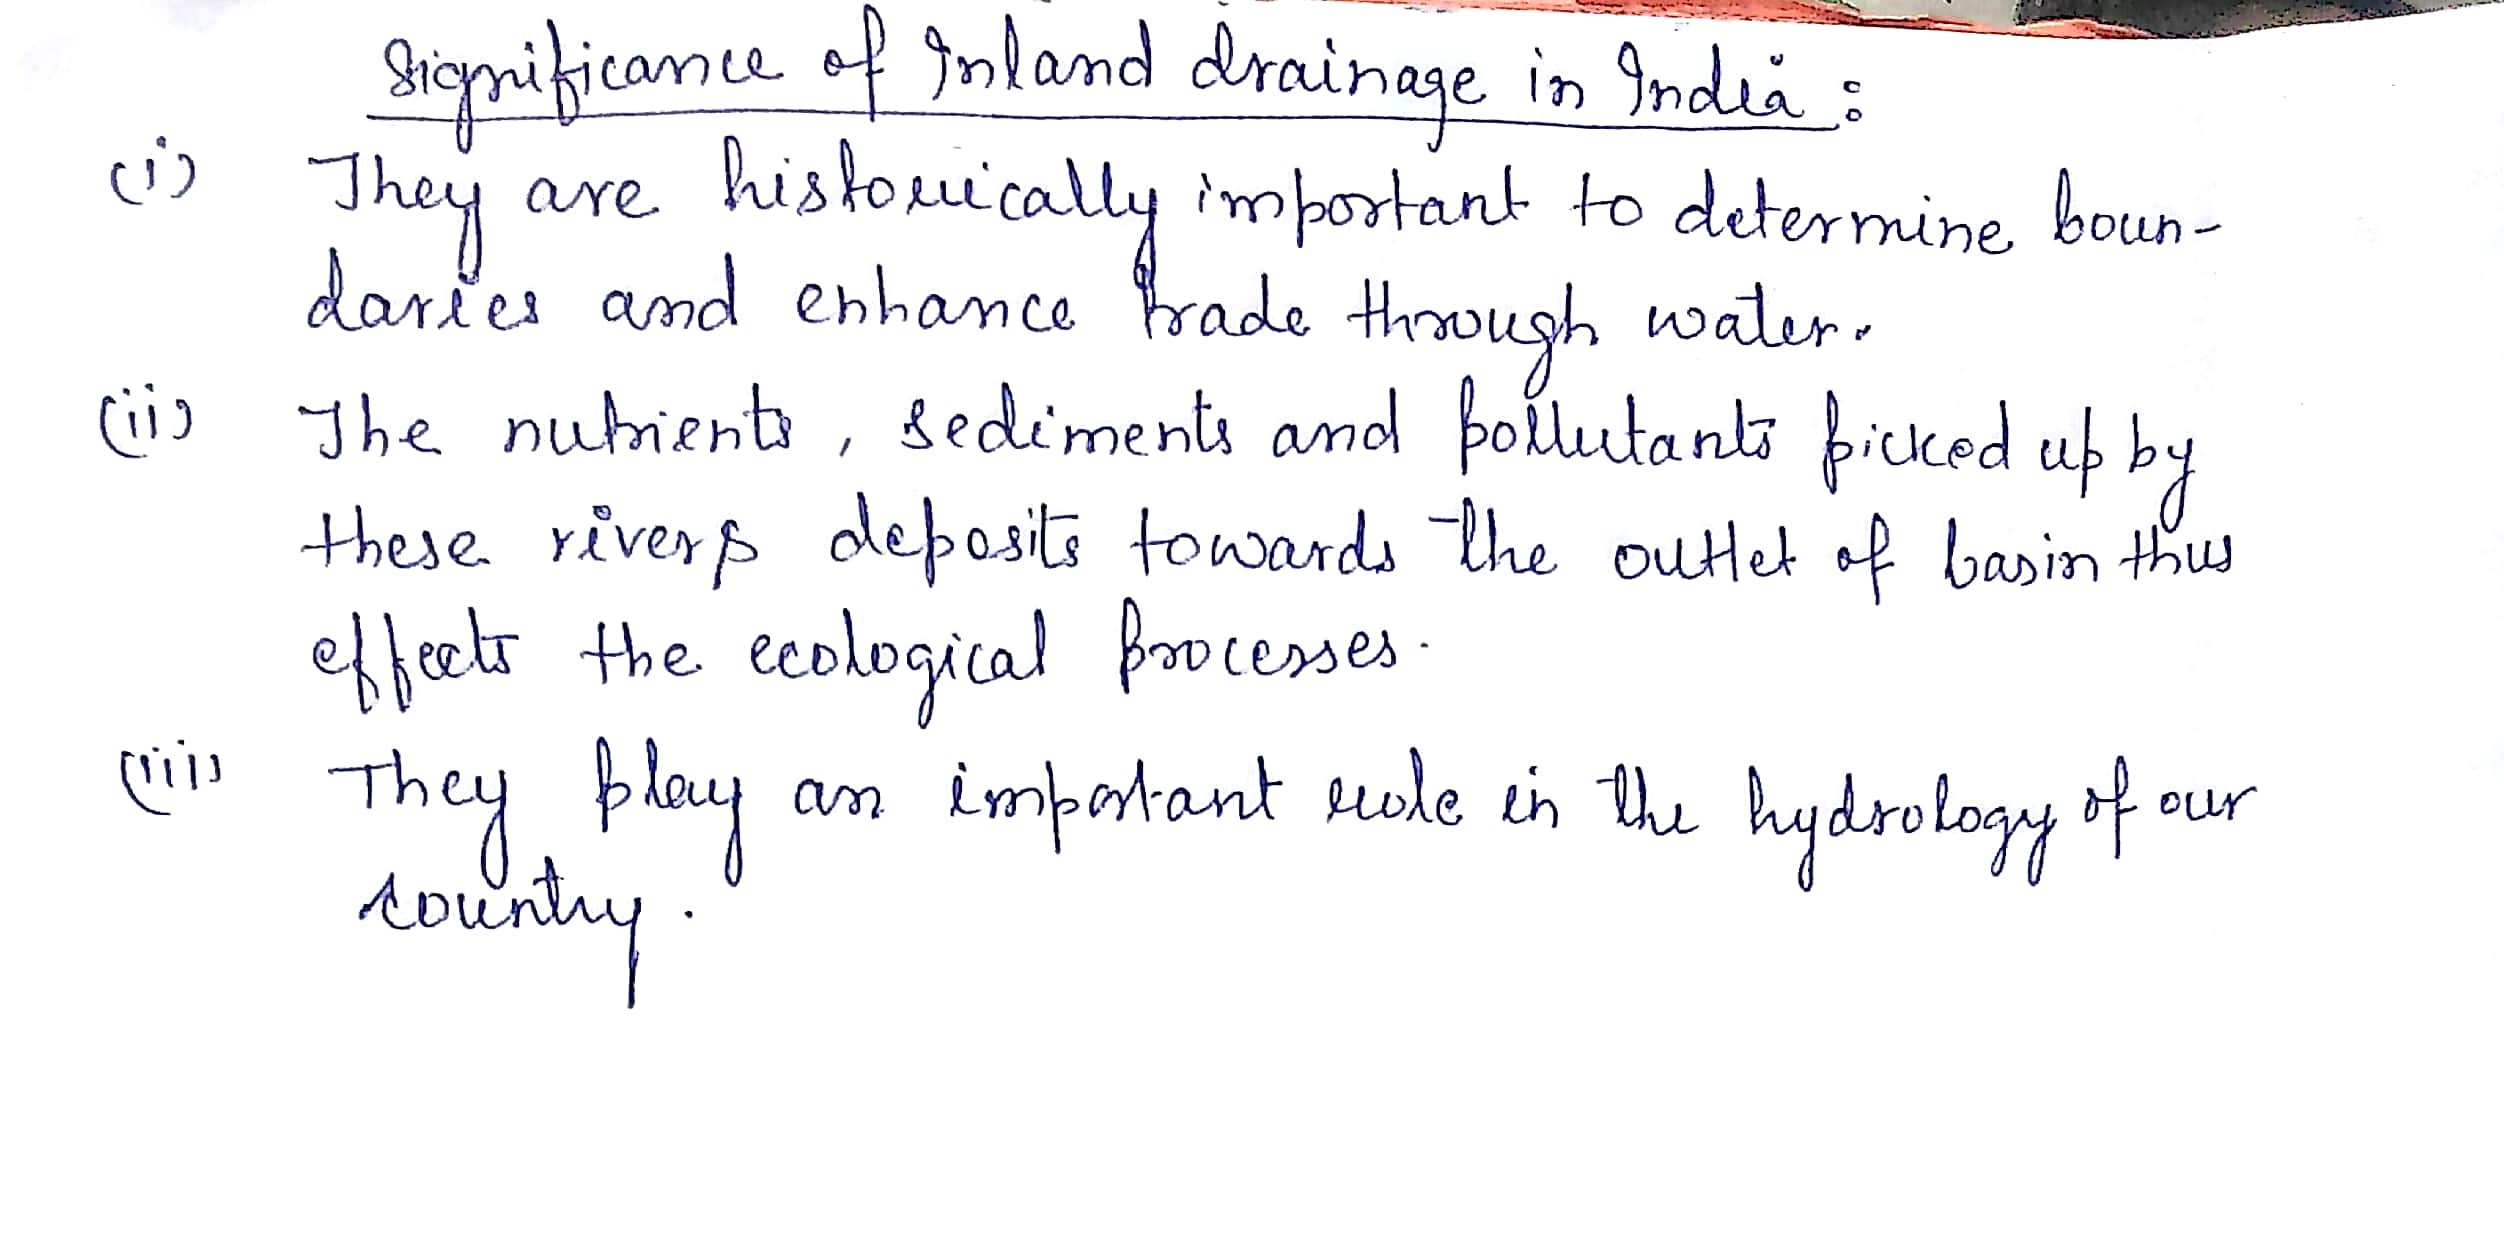 Significance of Inland drainage in India :
(i) They are historically important to determine boun-
daries and enhance trade through water.
(ii) The nutrients, sediments and pollutants picked up by
these rivers deposits towards the outlet of basin thus
effects the ecological processes.
(iii) They play an important role in the hydrology of our
country.